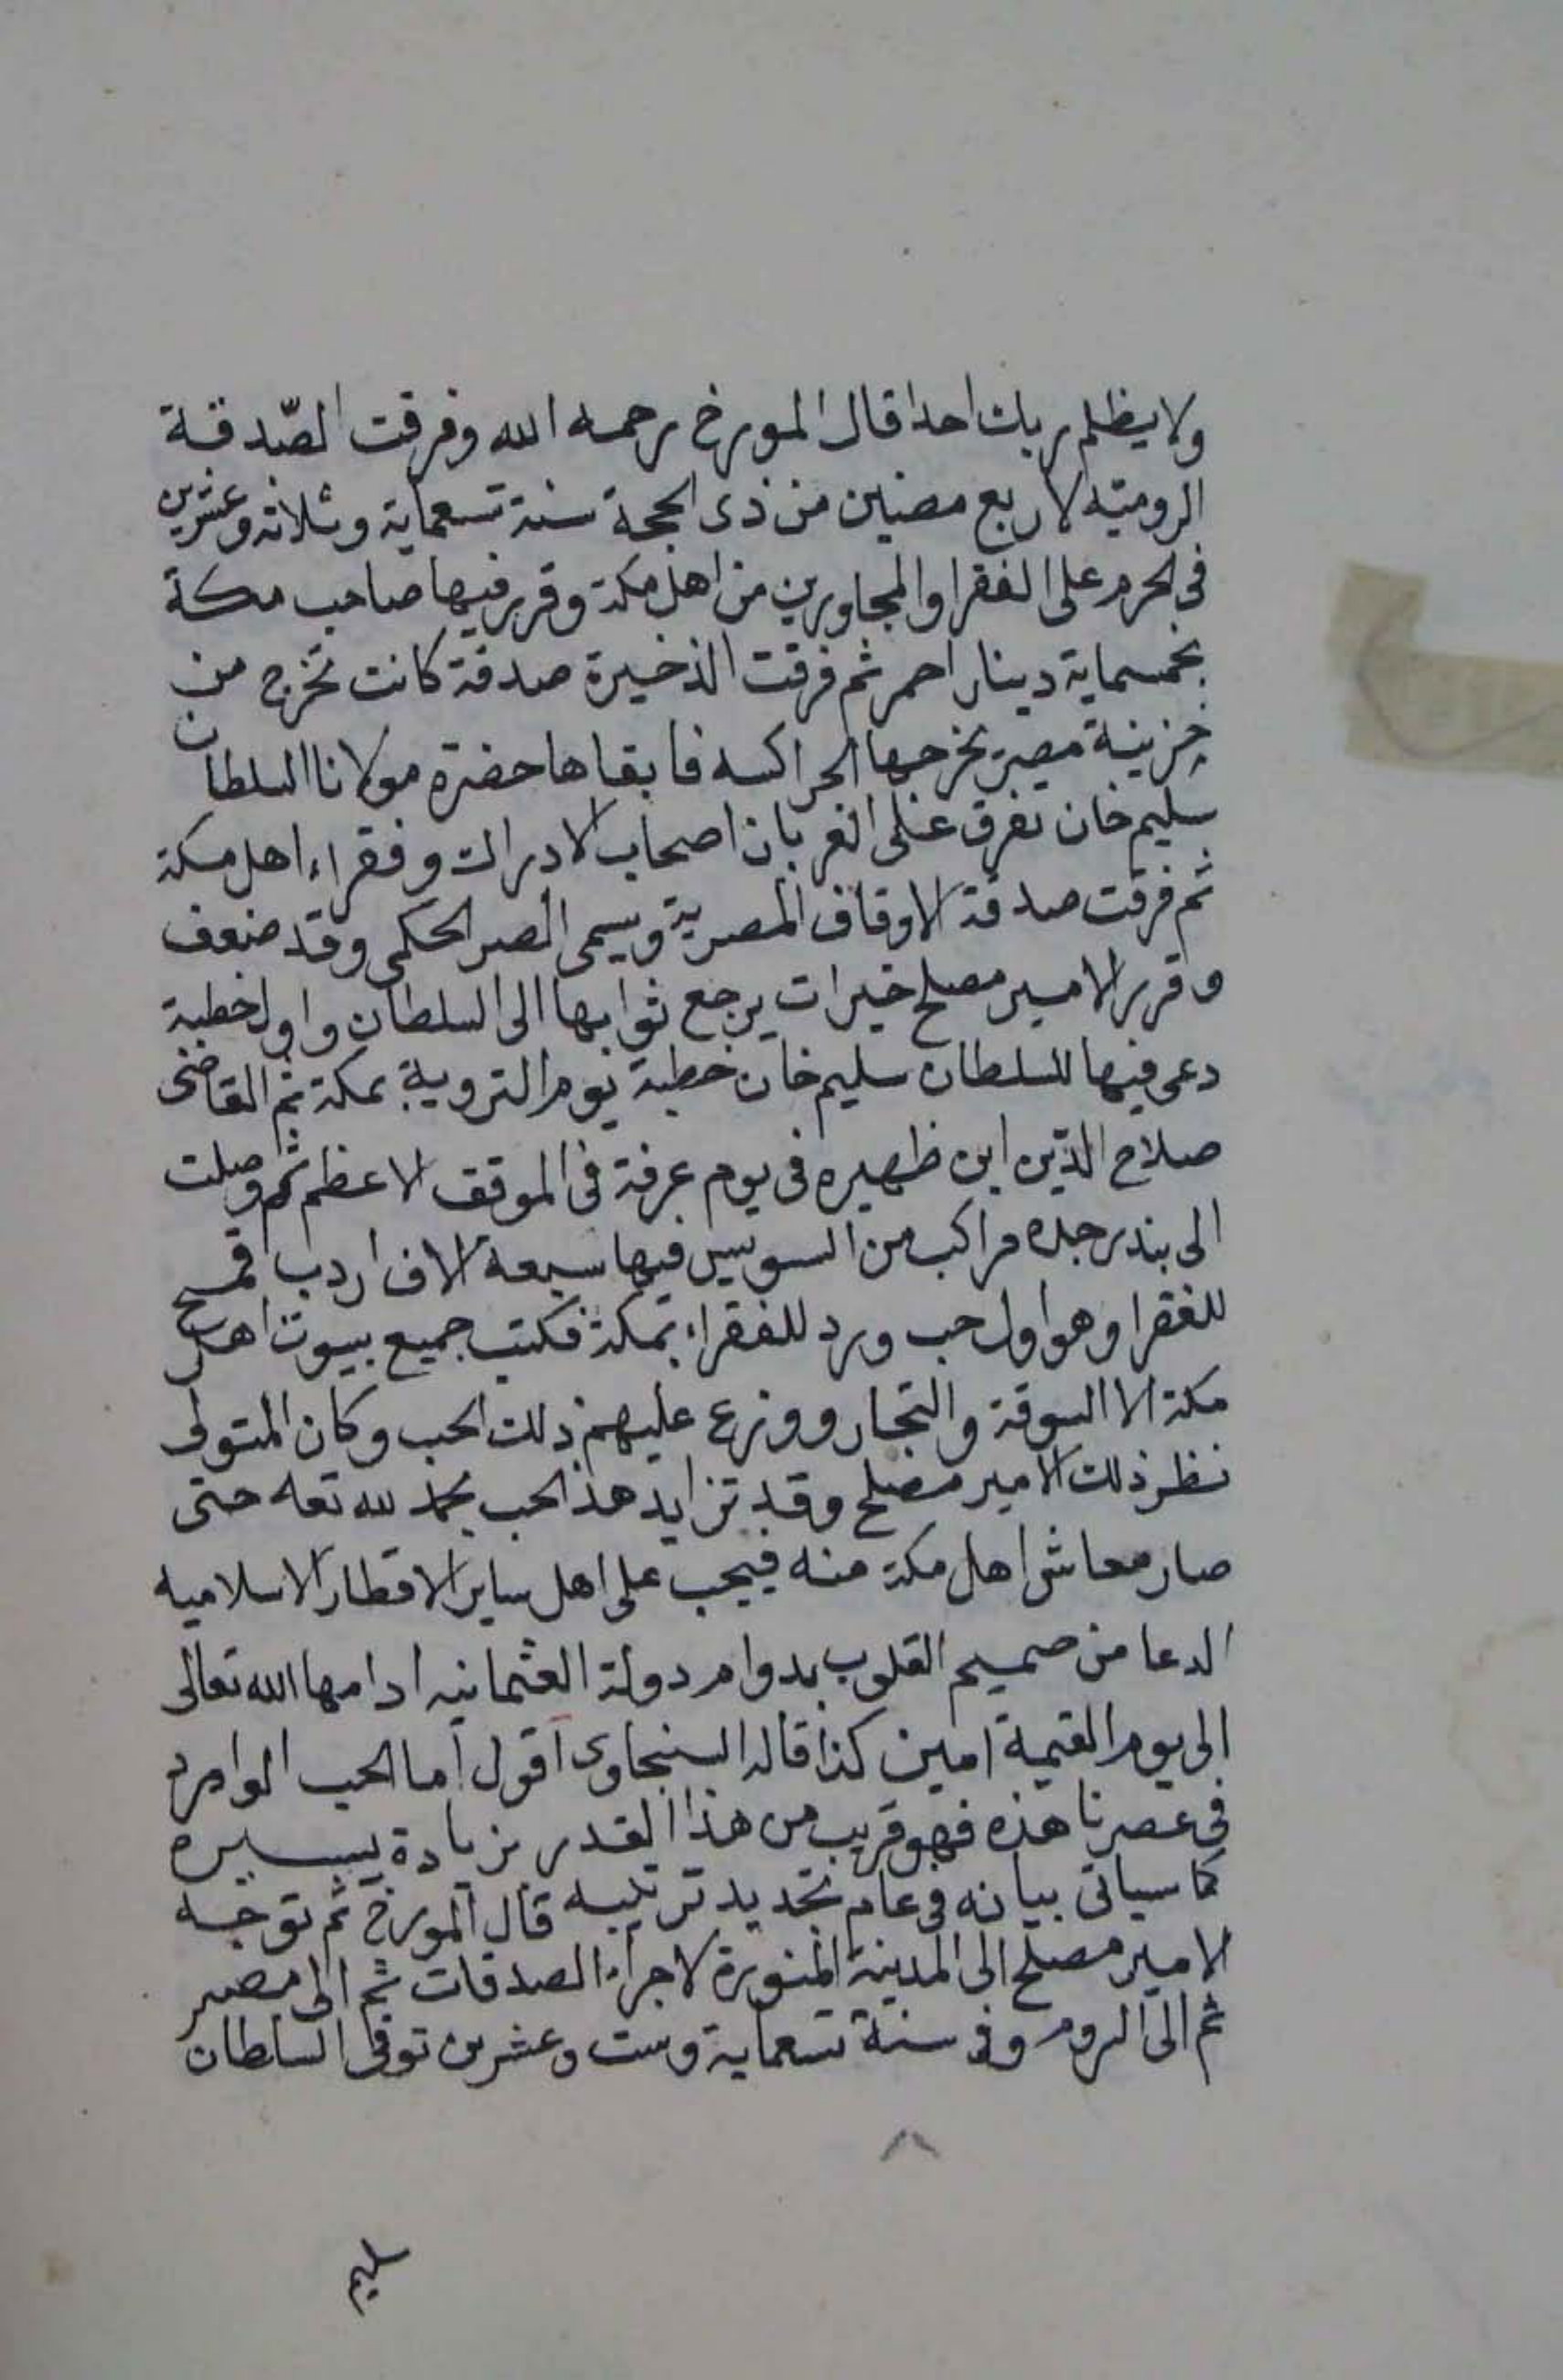 ولا يظلم ربك احدا قال المورخ رحمه الله وفرقت الصّدقة
الروميّه لاربع مضين من ذى الحجة سنة تسعماية وثلاثه وعشرين
فى الحرم على الفقرا والمجاورين من اهل مكة وقرر فيها صاحب مكة
بخمسماية دينار احمر ثم فرقت الذخيرة صدقة كانت تخرج من
خزينة مصر يخرجها الجراكسه فابقاها حضرة مولانا السلطان
سليم خان تفرق على الغربان اصحاب الادراك وفقراء اهل مكة
ثم فرقت صدقة الاوقاف المصرية ويسمى الصر الحكمى وقد ضعف
وقرر الامير مصلح خيرات يرجع ثوابها الى السلطان واول خطبة
دعى فيها للسلطان سليم خان خطبة يوم التروية بمكة ثم القاضى
صلاح الدّين ابن ظهيره فى يوم عرفة فى الموقف الاعظم ثم وصلت
الى بندر جده مراكب من السويس فيها سبعة الاف اردب قمح
للفقرا وهو اول حب ورد للفقراء بمكة فكتب جميع بيوت اهل
مكة الا السوقة والتجار ووزع عليهم ذلك الحب وكان المتولى
نظر ذلك الامير مصلح وقد تزايد هذا الحب بحمد لله تعه حتى
صار معاش اهل مكة منه فيجب على اهل ساير الاقطار الاسلاميه
الدعا من صميم القلوب بدوام دولة العثمانيه ادامها الله تعالى
الى يوم القيمة امين كذا قاله السنجاوى اقول اما الحب الوارد
فى عصرنا هذه فهو قريب من هذا القدر بزيادة يسيره
كما سياتى بيانه فى عام تجديد ترتيبه قال المورخ ثم توجه
الامير مصلح الى المدينة المنورة لاجراء الصدقات ثم الى مصر
ثم الى الروم وفى سنة تسعماية وست وعشرين توفى السلطان
سليم